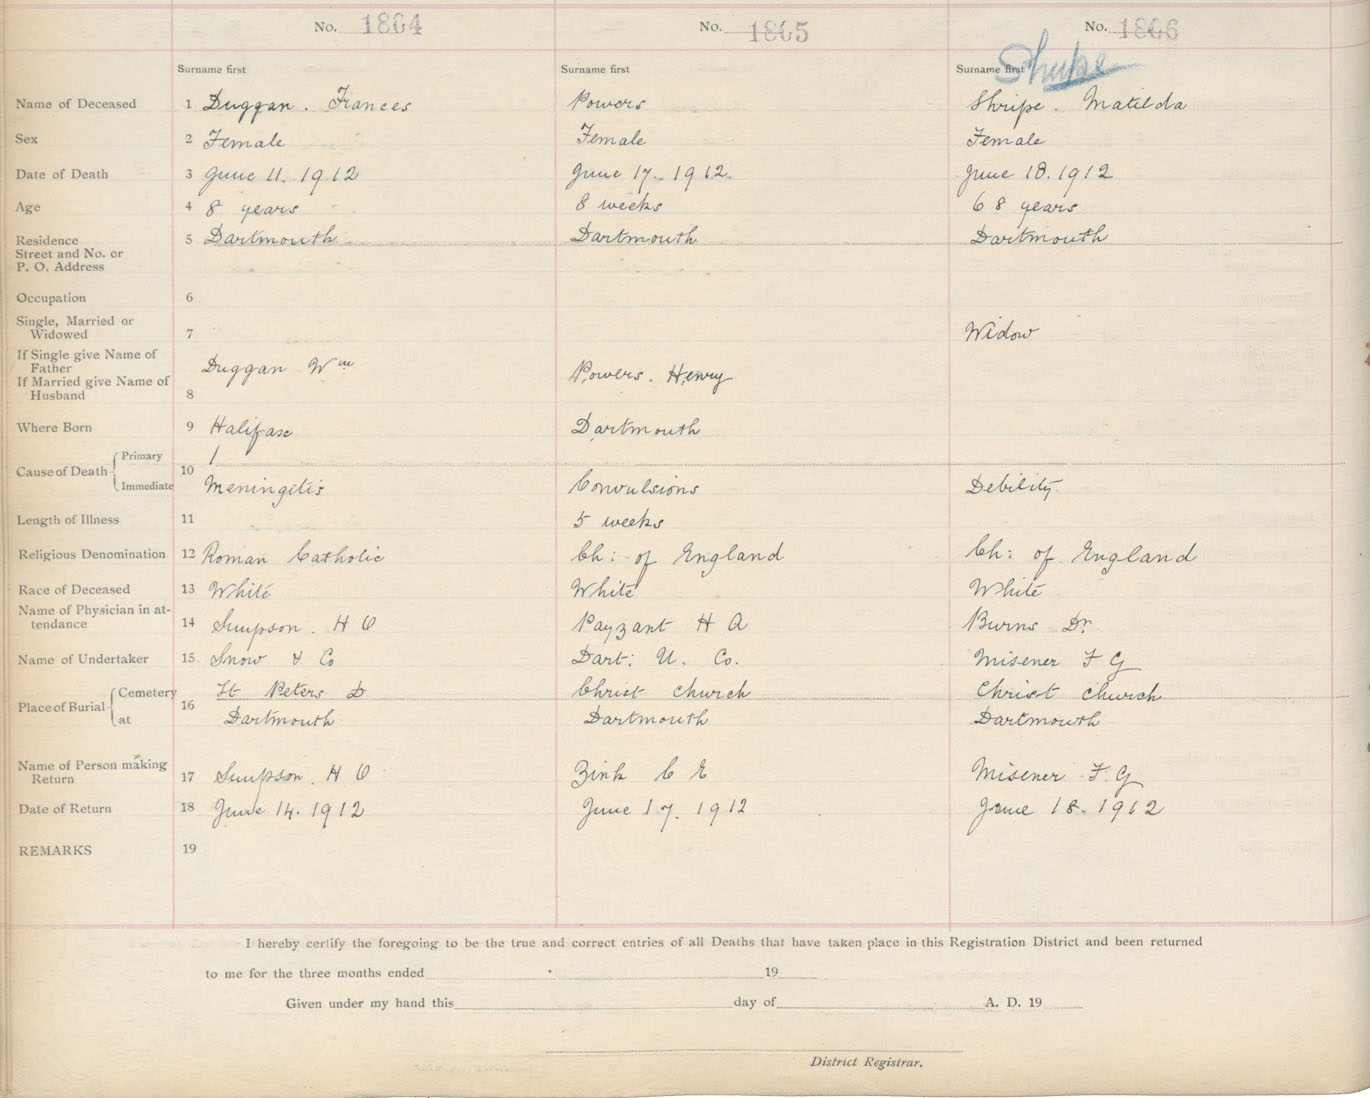 No. 1864 No. 1865 No. 1866
Shupe
Surname first Surname first Surname first
Name of Deceased 1 Duggan. Frances Powers Shripe. Matilda
Sex 2 Female Female Female
Date of Death 3 June 11. 1912 June 17. 1912. June 18. 1912
Age 4 8 years 8 weeks 68 years
Residence 5 Dartmouth Dartmouth Dartmouth
Street and No. or
P. O. Address
Occupation 6
Single, Married or
Widowed 7 Widow
If Single give Name of
Father Duggan Wm Powers. Henry
If Married give Name of
Husband 8
Where Born 9 Halifax Dartmouth
Cause of Death Primary 10 /
Immediate Meningitis Convulsions Debility
Length of Illness 11 5 weeks
Religious Denomination 12 Roman Catholic Ch: of England Ch: of England
Race of Deceased 13 White White White
Name of Physician in at-
tendance 14 Simpson. H O Payzant H A Burns Dr
Name of Undertaker 15 Snow & Co Dart: U. Co. Misener F G
Place of Burial Cemetery 16 St Peters D Christ church Christ church
at Dartmouth Dartmouth Dartmouth
Name of Person making
Return 17 Simpson. H O Zink C E Misener F. G
Date of Return 18 June 14. 1912 June 17. 1912 June 18. 1912
REMARKS 19
I hereby certify the foregoing to be the true and correct entries of all Deaths that have taken place in this Registration District and been returned
to me for the three months ended 19
Given under my hand this day of A. D. 19
District Registrar.